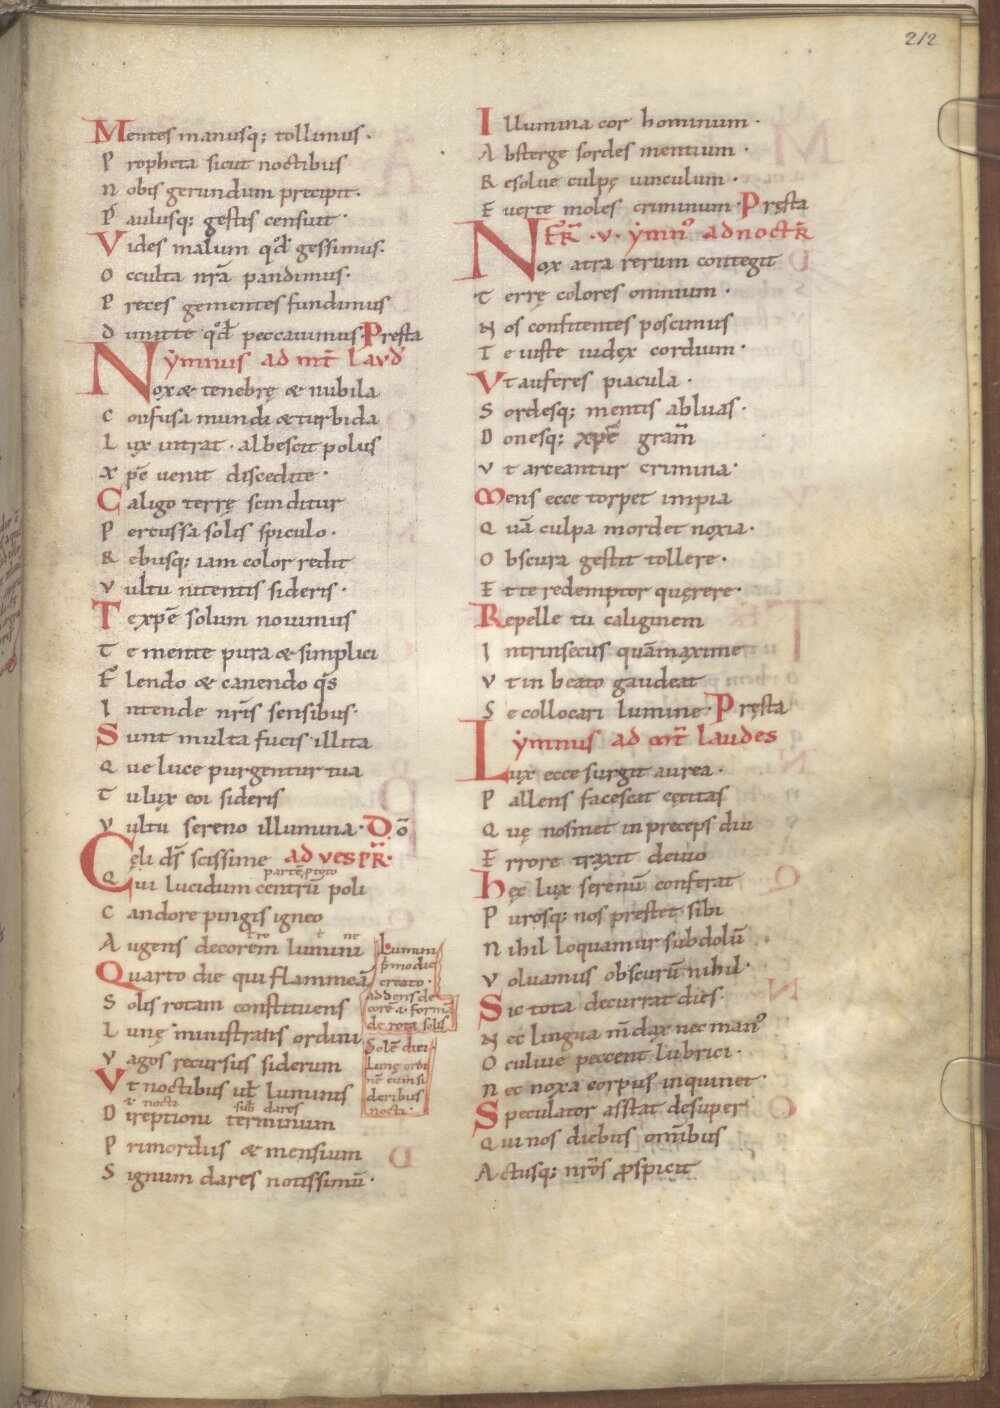 212
Mentes manusq; tollimus·
Propheta sicut noctibus
nobis gerundum precipit·
Paulusq; gestis censuit·
Vides malum qđ gessimus·
Occulta nr̄a pandimus·
Preces gementes fundimus
Dimitte qđ peccauimus· Presta
Ymnus ad mt̄ laud'
Nox & tenebrę & nubila
Confusa mundi & turbida
Lux intrat· albescit polus
xpē uenit discedite·
Caligo terrę scinditur
Percussa solis spiculo·
Rebusq; iam color redit
Vultu nitentis sideris·
Te xpē solum nouimus
Te mente pura & simplici
Flendo & canendo qs̄
Intende nr̄is sensibus·
Sunt multa fucis illita
Que luce purgentur tua
Tu lux eoi sideris
Vultu sereno illumina· Dō
Cęli ds̄ scissime ad vespr̄·
Qui lucidum centrū poli
Candore pingis igneo
Augens decorem lumini
Quarto die qui flammeā
Solis rotam constituens
Lunę ministrans ordini
Vagos recursus siderum
Vt noctibus uł luminis
Direptioni terminum
Primordiis & mensium
Signum dares notissimū·
Lumini
primo die
creato·
addens de
core· i· formā
de rota solis
Solē diei
Lunę orbi
nē cum si
deribus
nocti·
Illumina cor hominum·
Absterge sordes mentium·
Resolue culpę uinculum·
Euerte moles criminum· Pręsta
Fr̄· v· ymn' ad noctr̄
Nox atra rerum contegit
Terrę colores omnium·
Nos confitentes poscimus
Te iuste iudęx cordium·
Vt auferes piacula·
Sordesq; mentis abluas·
Donesq; xpē gram̄
Vt arceantur crimina·
Mens ecce torpet impia
Quā culpa mordet noxia·
Obscura gestit tollere·
Et te redemptor quęrere·
Repelle tu caliginem
Intrinsecus quā maxime
Vt in beato gaudeat
Se collocari lumine· Pręsta
Ymnus ad mt̄ laudes
Lux ecce surgit aurea·
Pallens facescat cęcitas
Quę nosmet in preceps diu
Errore traxit deuio
hęc lux serenū conferat
Purosq; nos prestet sibi
Nihil loquamur subdolū
Voluamus obscurū nihil·
Sic tota decurrat dies·
Nec lingua m̄dax nec man'
Oculiue peccent lubrici·
nec noxa corpus inquinet·
Speculator asstat desuper
Qui nos diebus omībus
Actusq; nr̄os p̄spicit